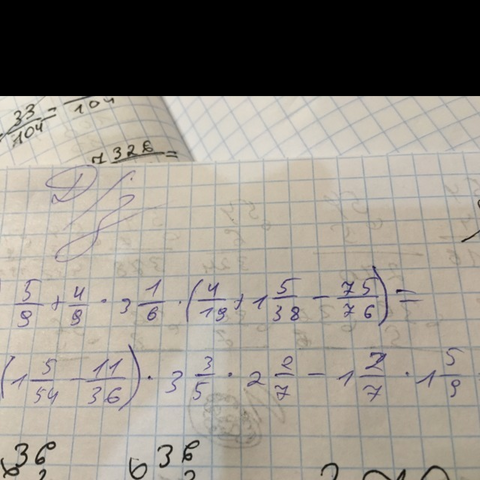 33/104 =
104
7 326 =
Д/з
5/9 + 4/9 · 3 1/6 · (4/19 + 1 5/38 - 75/76) =
(1 5/54 - 11/36) · 3 3/5 · 2 2/7 - 1 2/7 · 1 5/9
36 36